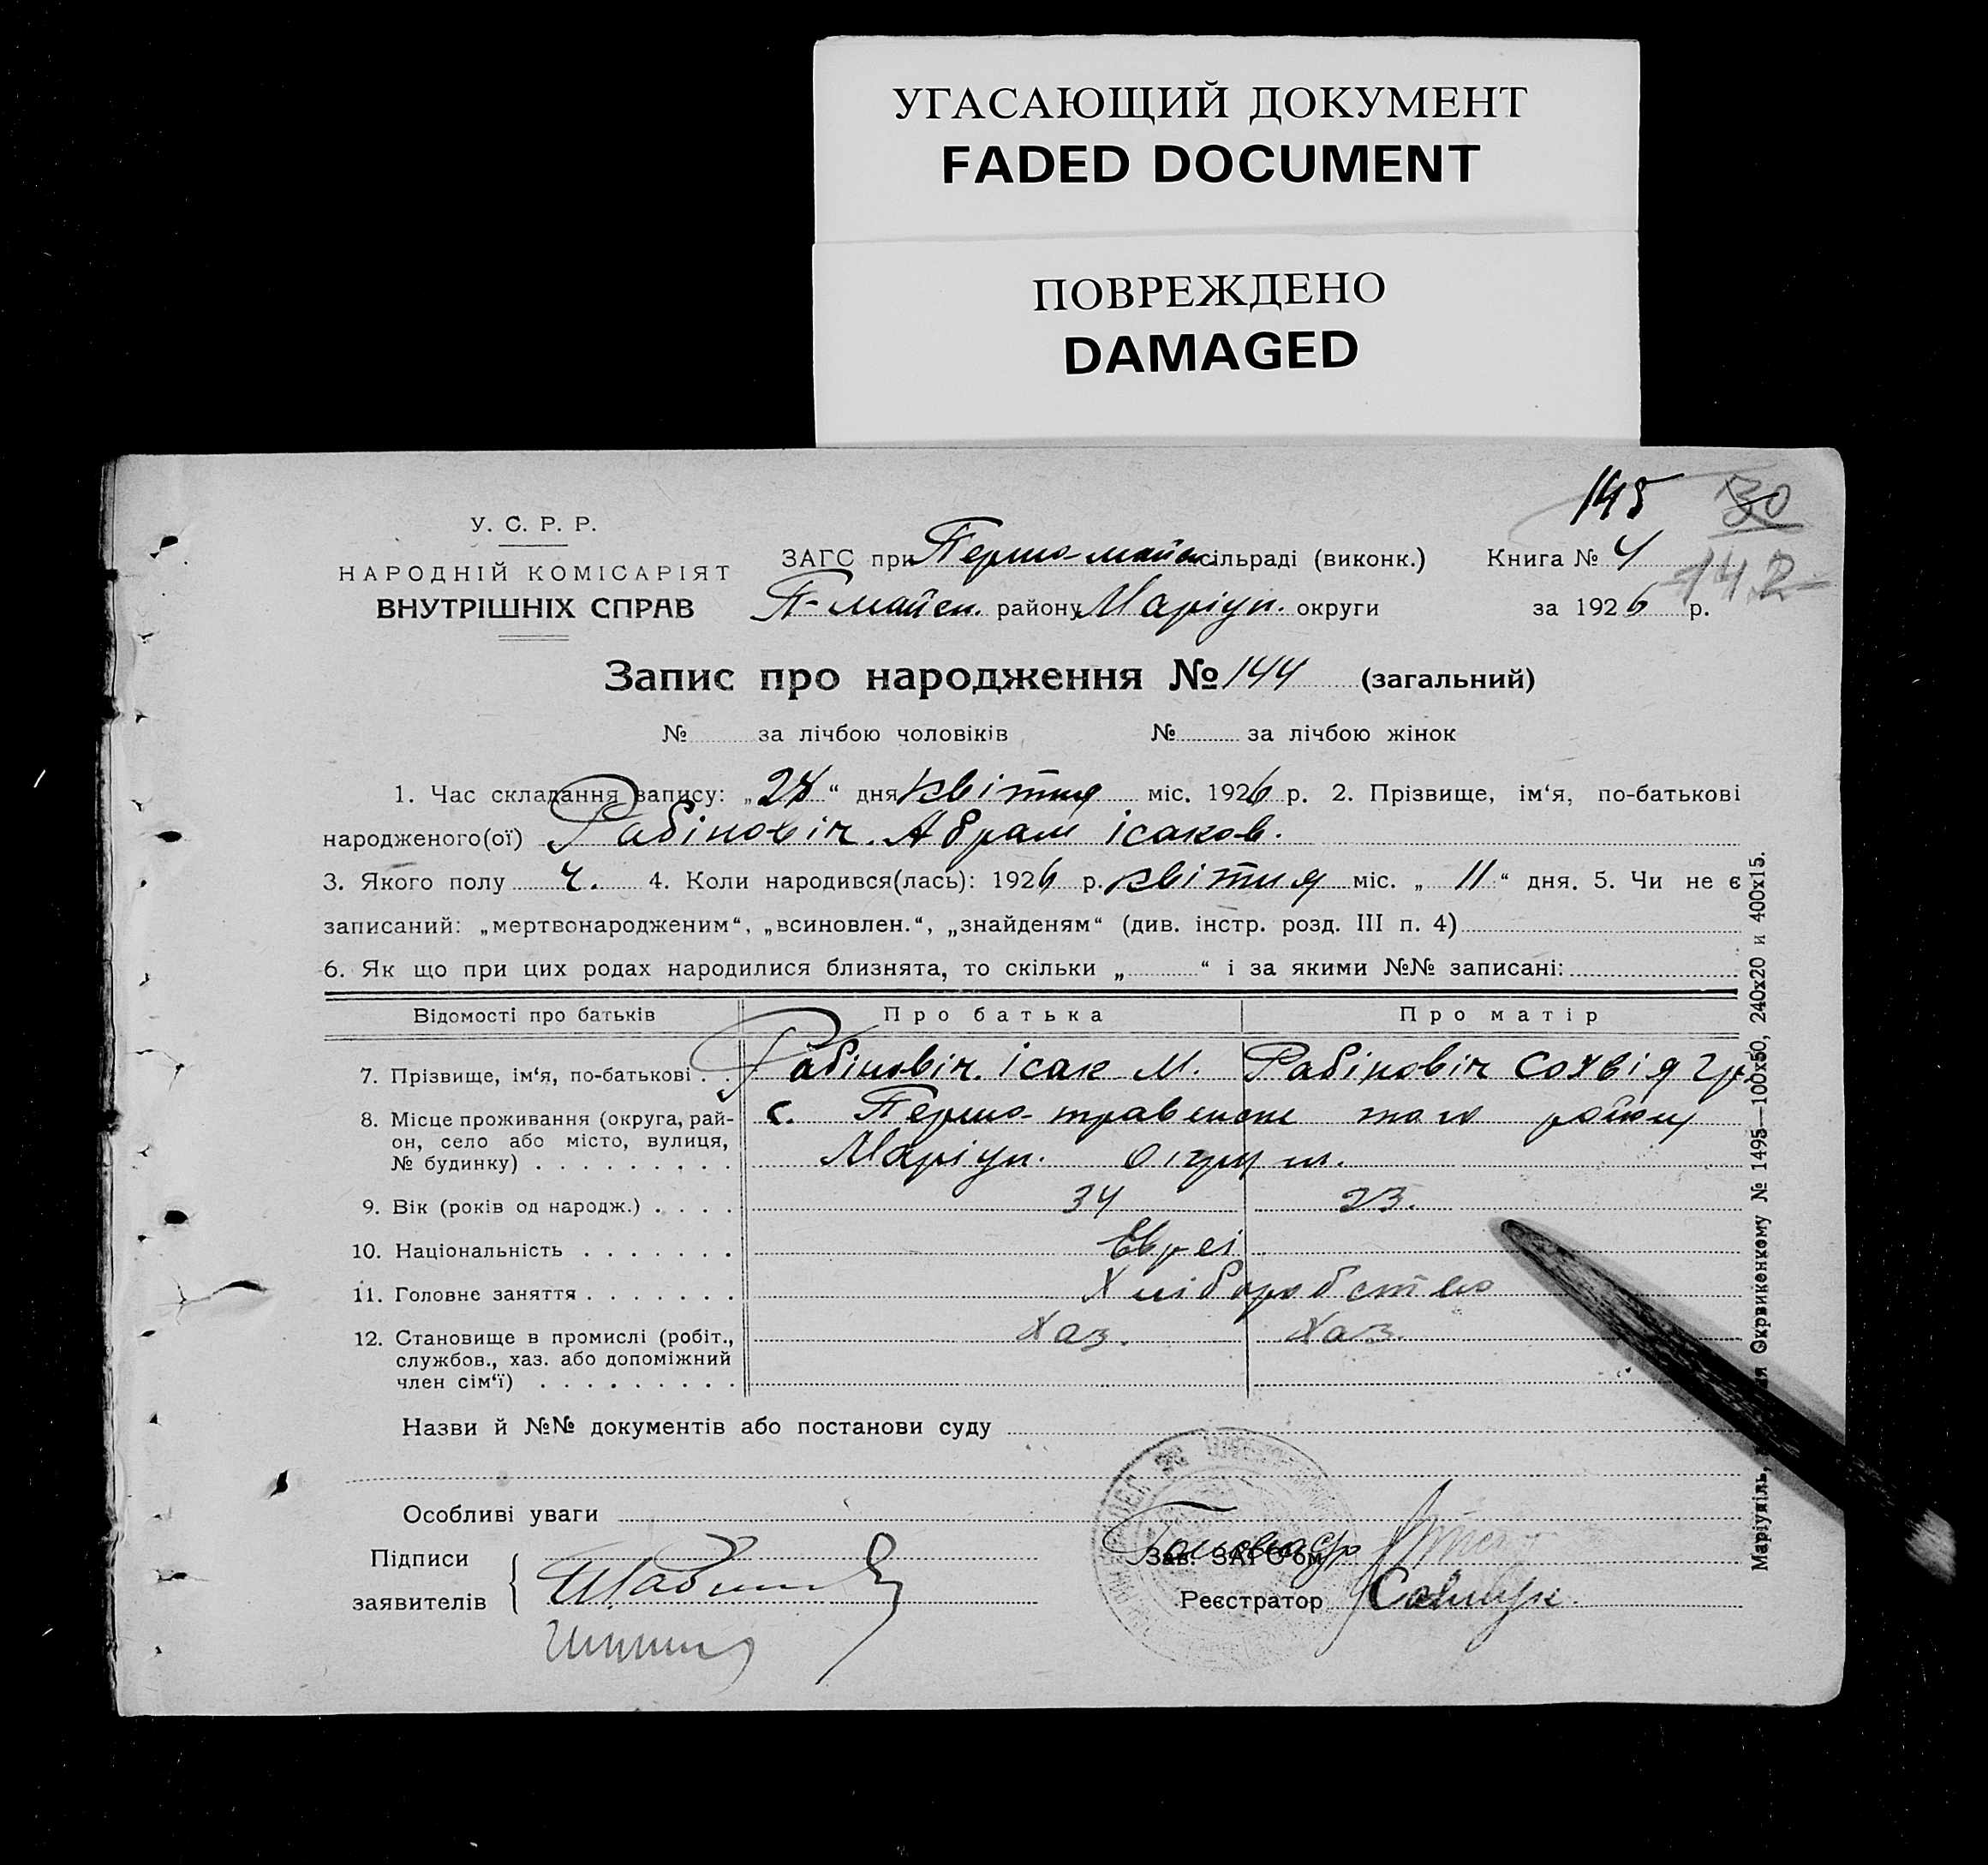 УГАСАЮЩИЙ ДОКУМЕНТ
FADED DOCUMENT
ПОВРЕЖДЕНО
DAMAGED
145 30
У. С. Р. Р.
НАРОДНІЙ КОМІСАРІЯТ
ВНУТРІШНІХ СПРАВ
ЗАГС при Першо-майс. сільраді (виконк.) Книга № 4
142
П-майск. району Маріуп. округи за 1926 р.
Запис про народження № 144 (загальний)
№ за лічбою чоловіків № за лічбою жінок
1. Час складання запису: „28“ дня квітня міс. 1926 р. 2. Прізвище, ім‘я, по-батькові
народженого(ої) Рабіновіч. Абрам ісаков.
3. Якого полу ч. 4. Коли народився(лась): 1926 р. квітня міс. „11“ дня. 5. Чи не є
записаний: „мертвонародженим“, „всиновлен.“, „знайденям“ (див. інстр. розд. III п. 4)
6. Як що при цих родах народилися близнята, то скільки „ “ і за якими №№ записані:
Відомості про батьків Про батька Про матір
7. Прізвище, ім‘я, по-батькові . . Рабіновіч. ісак М. Рабіновіч Софвія Гр.
8. Місце проживання (округа, рай- с. Першо-травенск того району
он, село або місто, вулиця,
№ будинку) . . . . . . . . . Маріуп. округи.
9. Вік (років од народж.) . . . . 34 23.
10. Національність . . . . . . . Евреі
11. Головне заняття . . . . . . . Хліборобство
12. Становище в промислі (робіт., Хаз. Хаз.
службов., хаз. або допоміжний
член сім‘ї) . . . . . . . . .
Назви й №№ документів або постанови суду
Особливі уваги
Підписи
заявителів
Зав. ЗАГС‘ом
Реєстратор
Маріупіль, Окрвиконкому № 1495—100x50, 240x20 и 400x15.